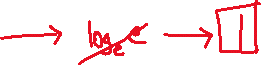 → log_e e → 1